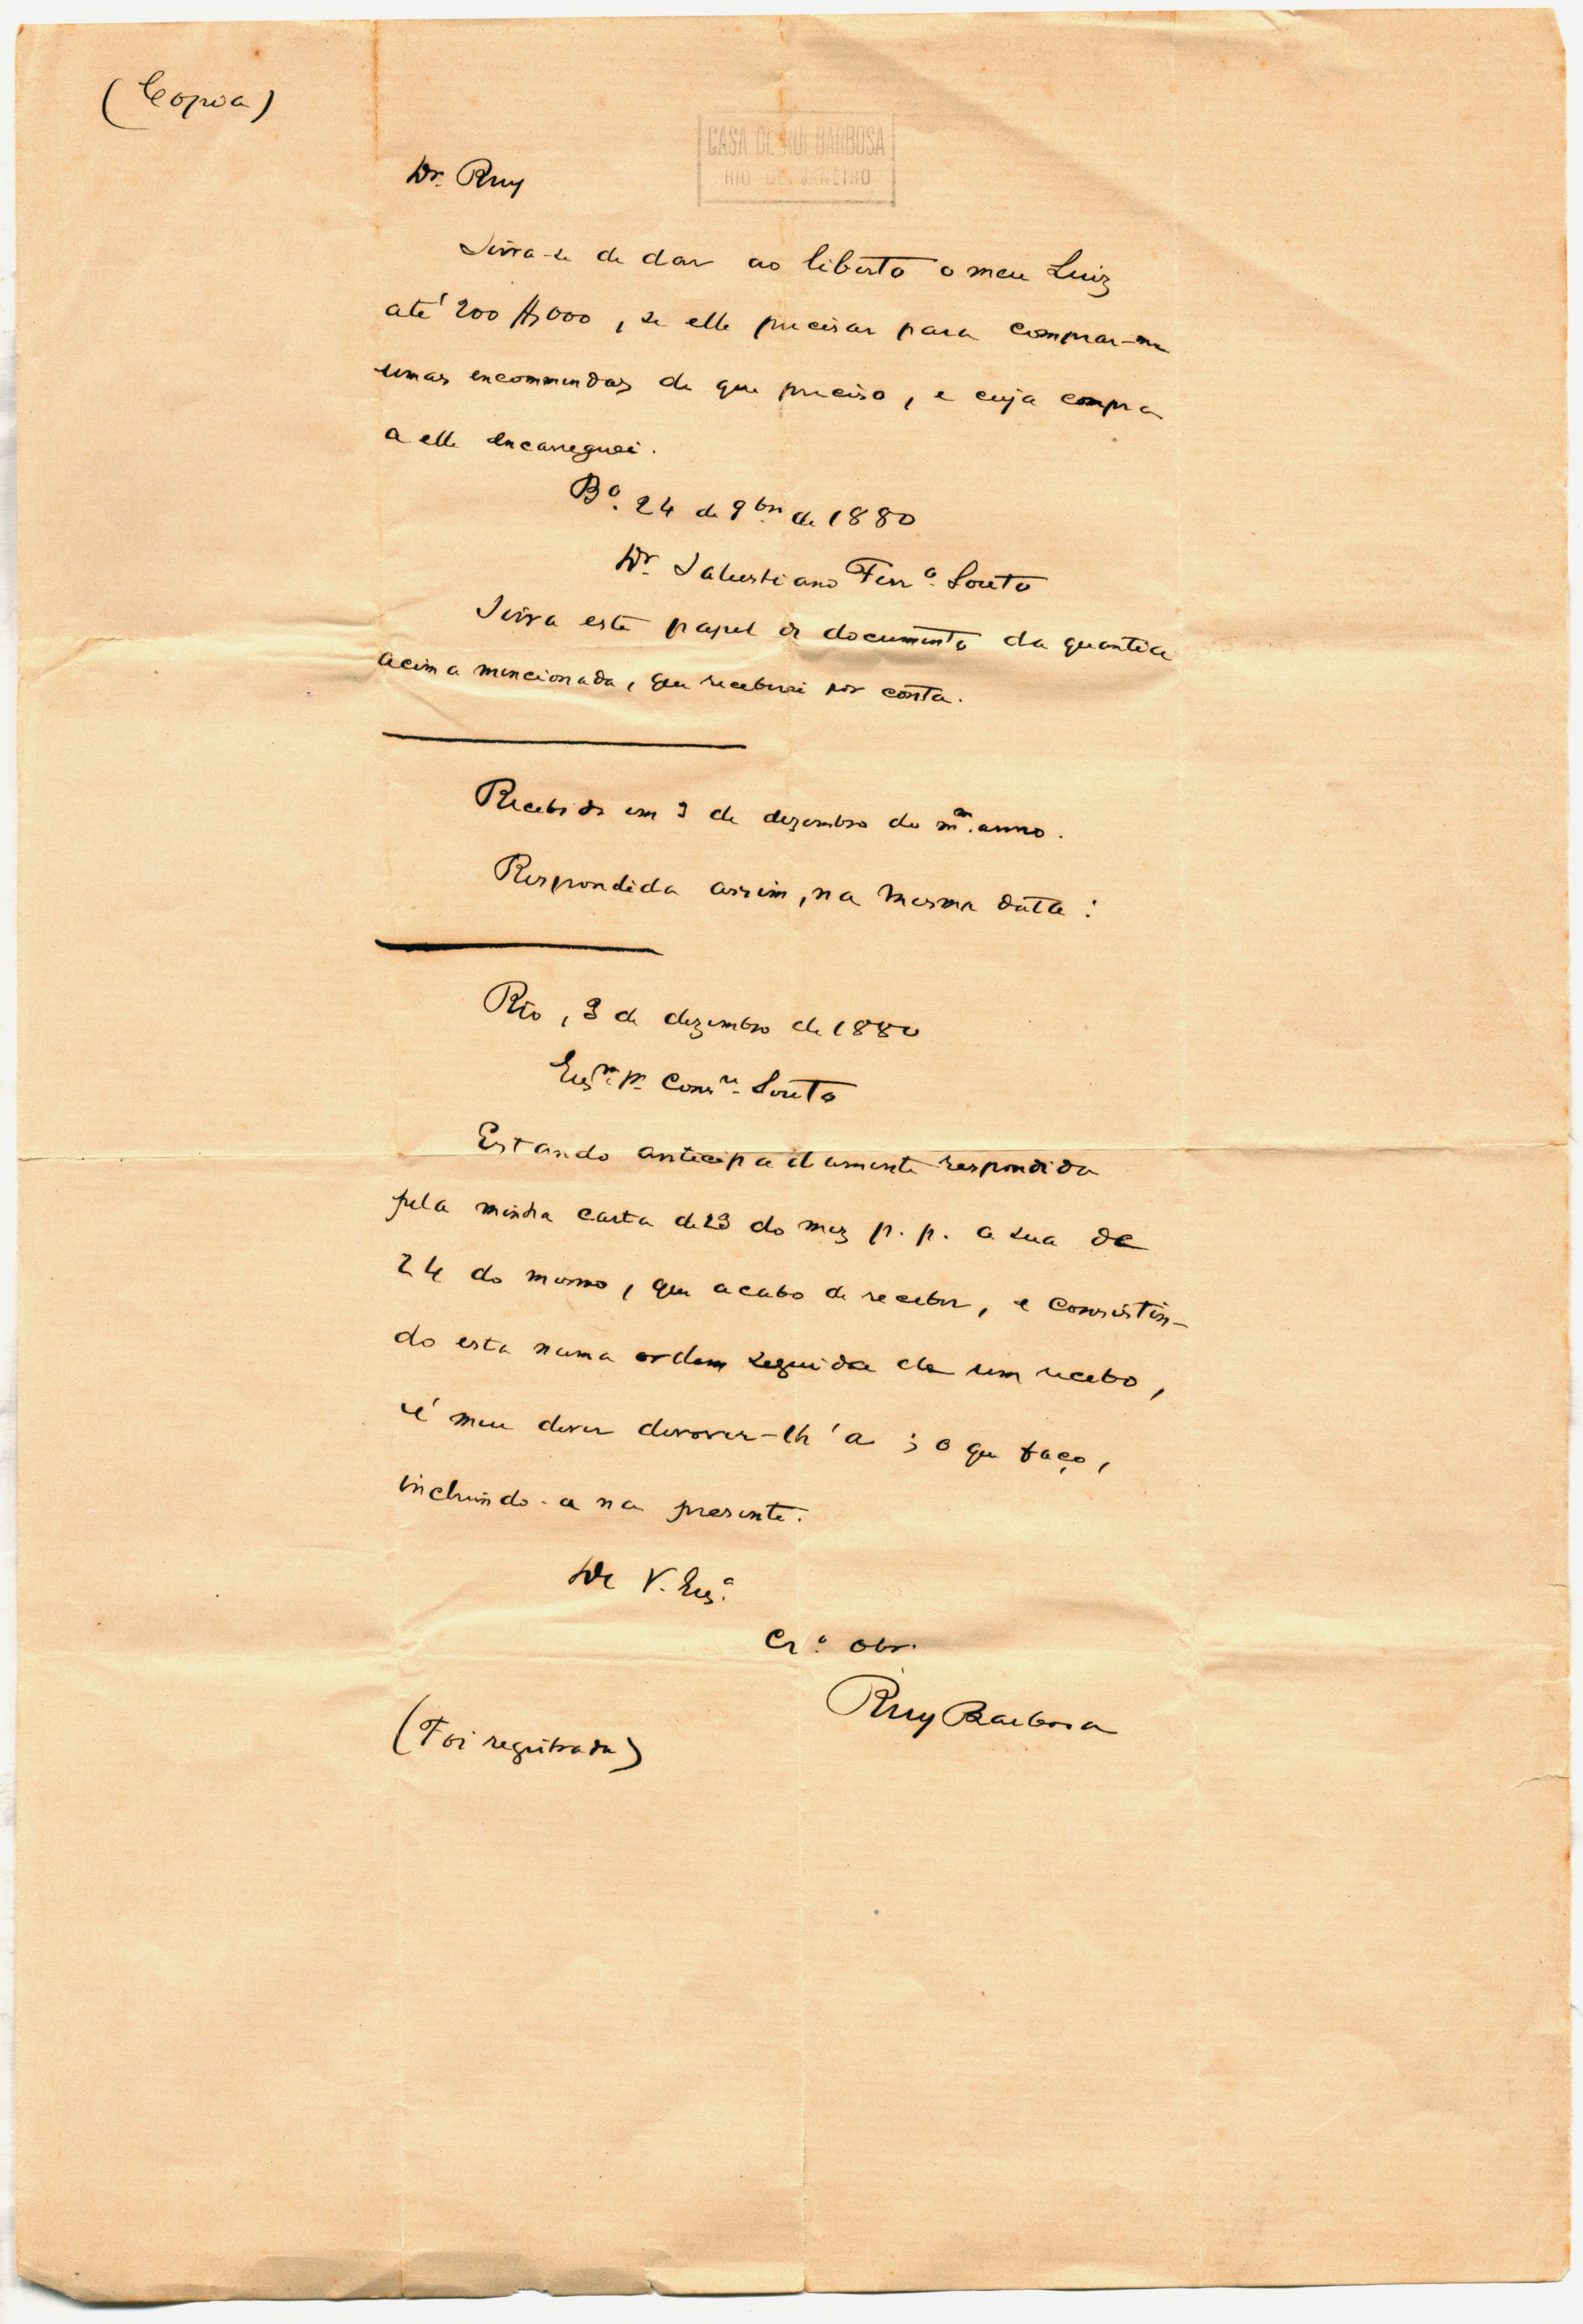 (Copia)
CASA DE RUI BARBOSA
RIO DE JANEIRO
Dr. Ruy
Sirva-se de dar ao liberto o meu Luiz
até 200$000, se elle precisar para comprar-me
umas encommendas de que preciso, e cuja compra
a elle encarreguei.
Bª. 24 de 9bro de 1880
Dr. Salustiano Ferrª. Souto
Sirva este papel de documento da quantia
acima mencionada, que receberei por conta.
Recebida em 3 de dezembro do mm. anno.
Respondida assim, na mesma data:
Rio, 3 de dezembro de 1880
Exmº. Sr. Consro. Souto
Estando antecipadamente respondida
pela minha carta de 23 do mez p. p. a sua de
24 do mesmo, que acabo de receber, e consistin-
do esta numa ordem seguida de um recibo,
é meu dever devolver-lh'a; o que faço,
incluindo-a na presente.
De V. Exª.
Crº. obr.
Ruy Barbosa
(Foi registrada)